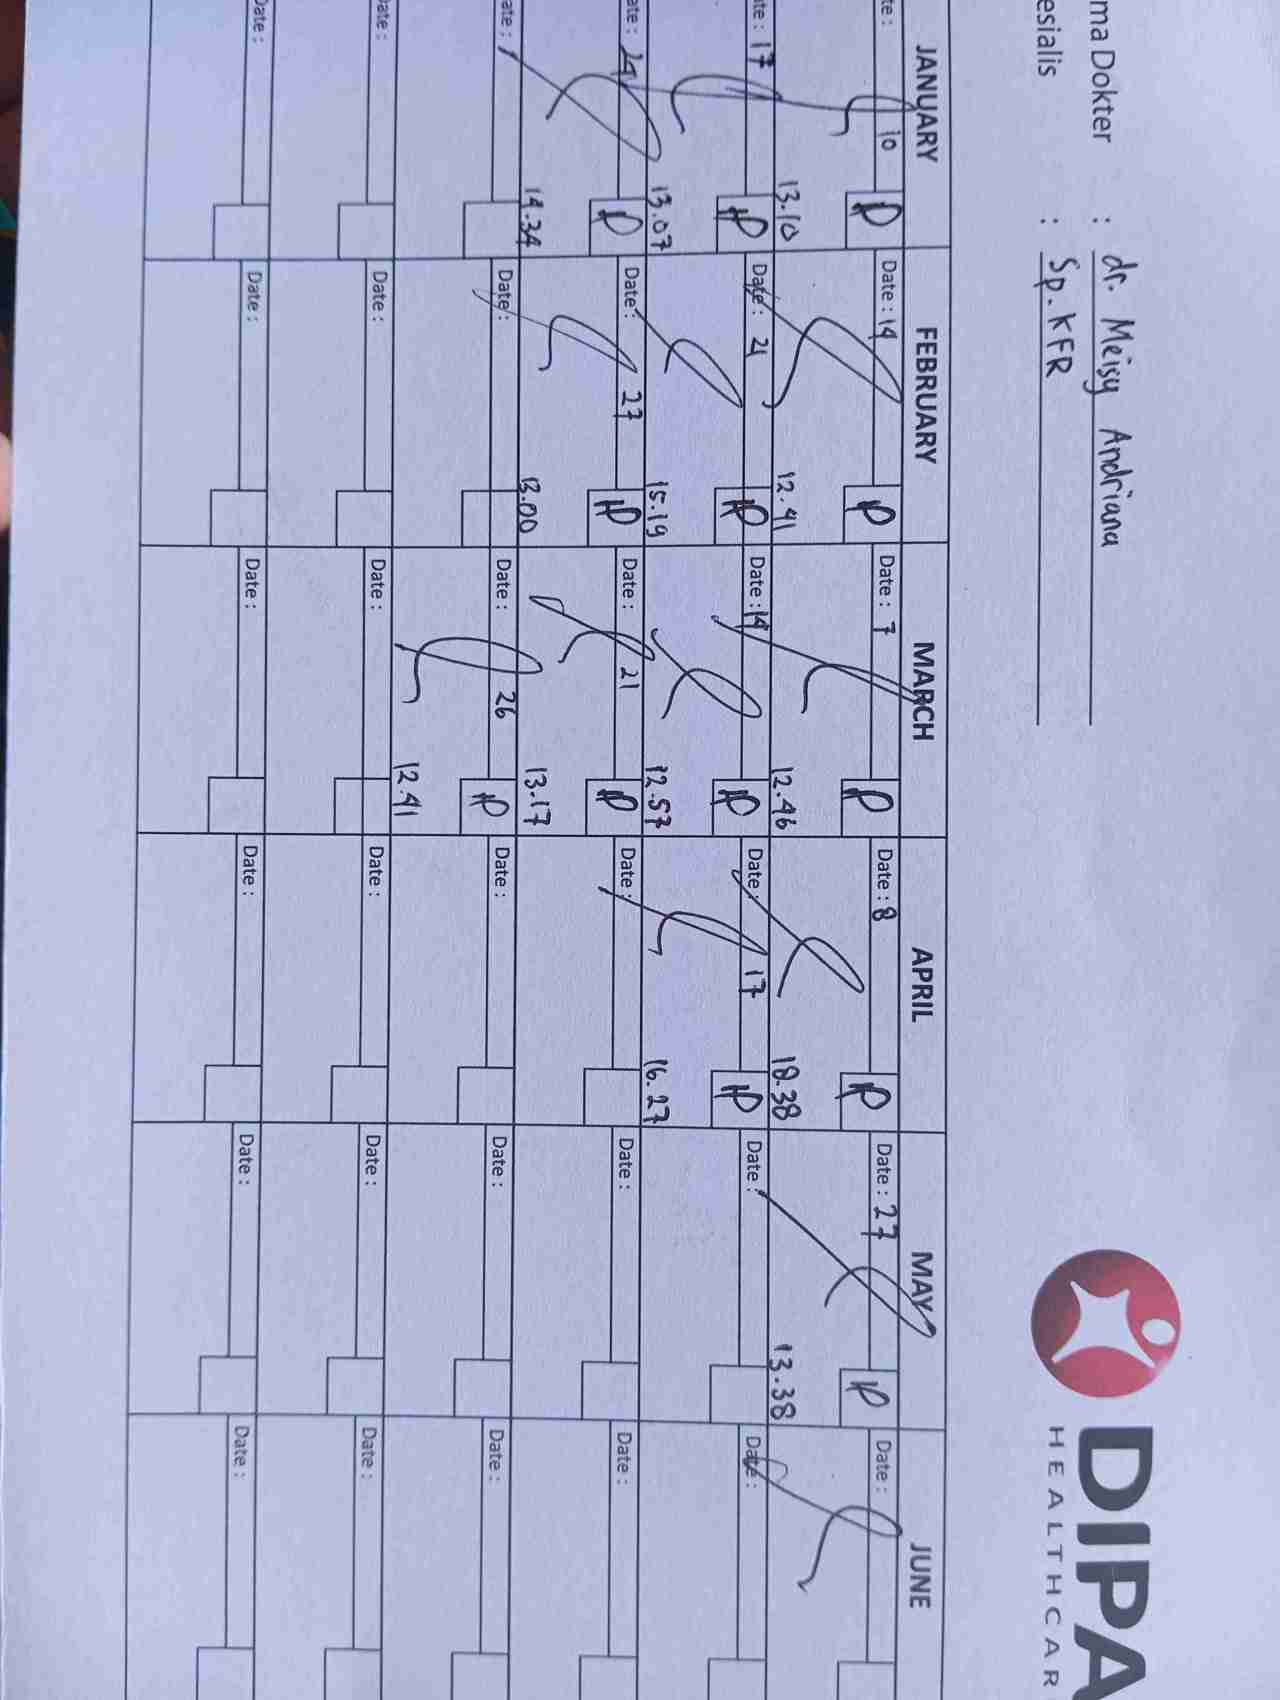 ma Dokter : dr. Meisy Andriana
esialis : Sp. KFR
DIPA
HEALTHCAR
JANUARY FEBRUARY MARCH APRIL MAY JUNE
te: 10 Date: 14 Date: 7 Date: 8 Date: 27 Date:
13.10 12.41 12.46 18.38 13.38
te: 17 Date: 21 Date: 14 Date: 17 Date: Date:
13.07 15.19 12.57 16.27
ate: 24 Date: 27 Date: 21 Date: Date: Date:
14.34 13.00 13.17
ate: Date: Date: 26 Date: Date: Date:
12.41
Date: Date: Date: Date: Date: Date:
Date: Date: Date: Date: Date: Date: